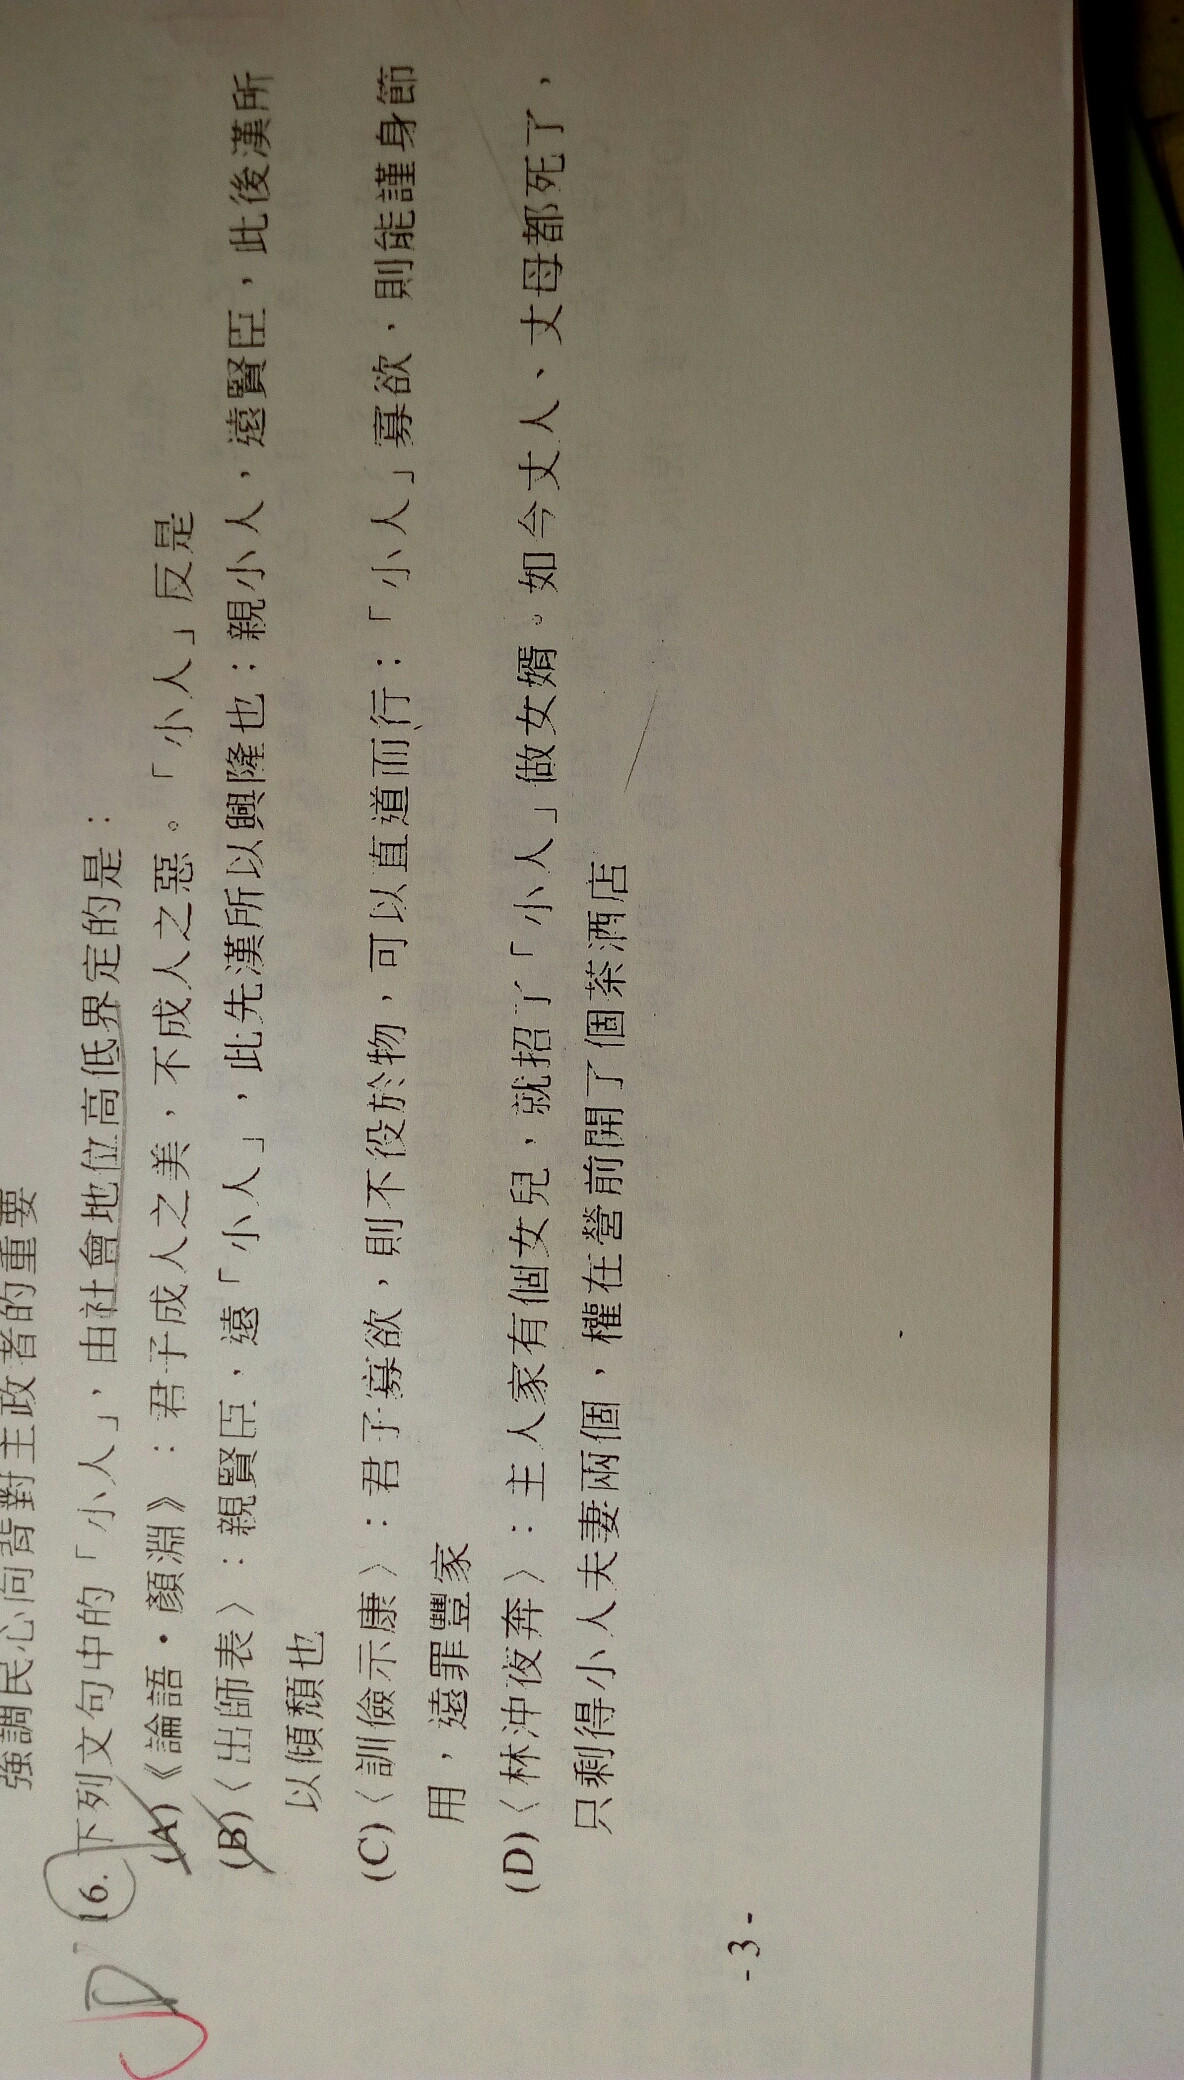 強調民心向背對主政者的重要
D
16. 下列文句中的「小人」，由社會地位高低界定的是：
(A)《論語・顏淵》：君子成人之美，不成人之惡。「小人」反是
(B)〈出師表〉：親賢臣，遠「小人」，此先漢所以興隆也；親小人，遠賢臣，此後漢所
以傾頹也
(C)〈訓儉示康〉：君子寡欲，則不役於物，可以直道而行；「小人」寡欲，則能謹身節
用，遠罪豐家
(D)〈林沖夜奔〉：主人家有個女兒，就招了「小人」做女婿。如今丈人、丈母都死了，
只剩得小人夫妻兩個，權在營前開了個茶酒店
- 3 -